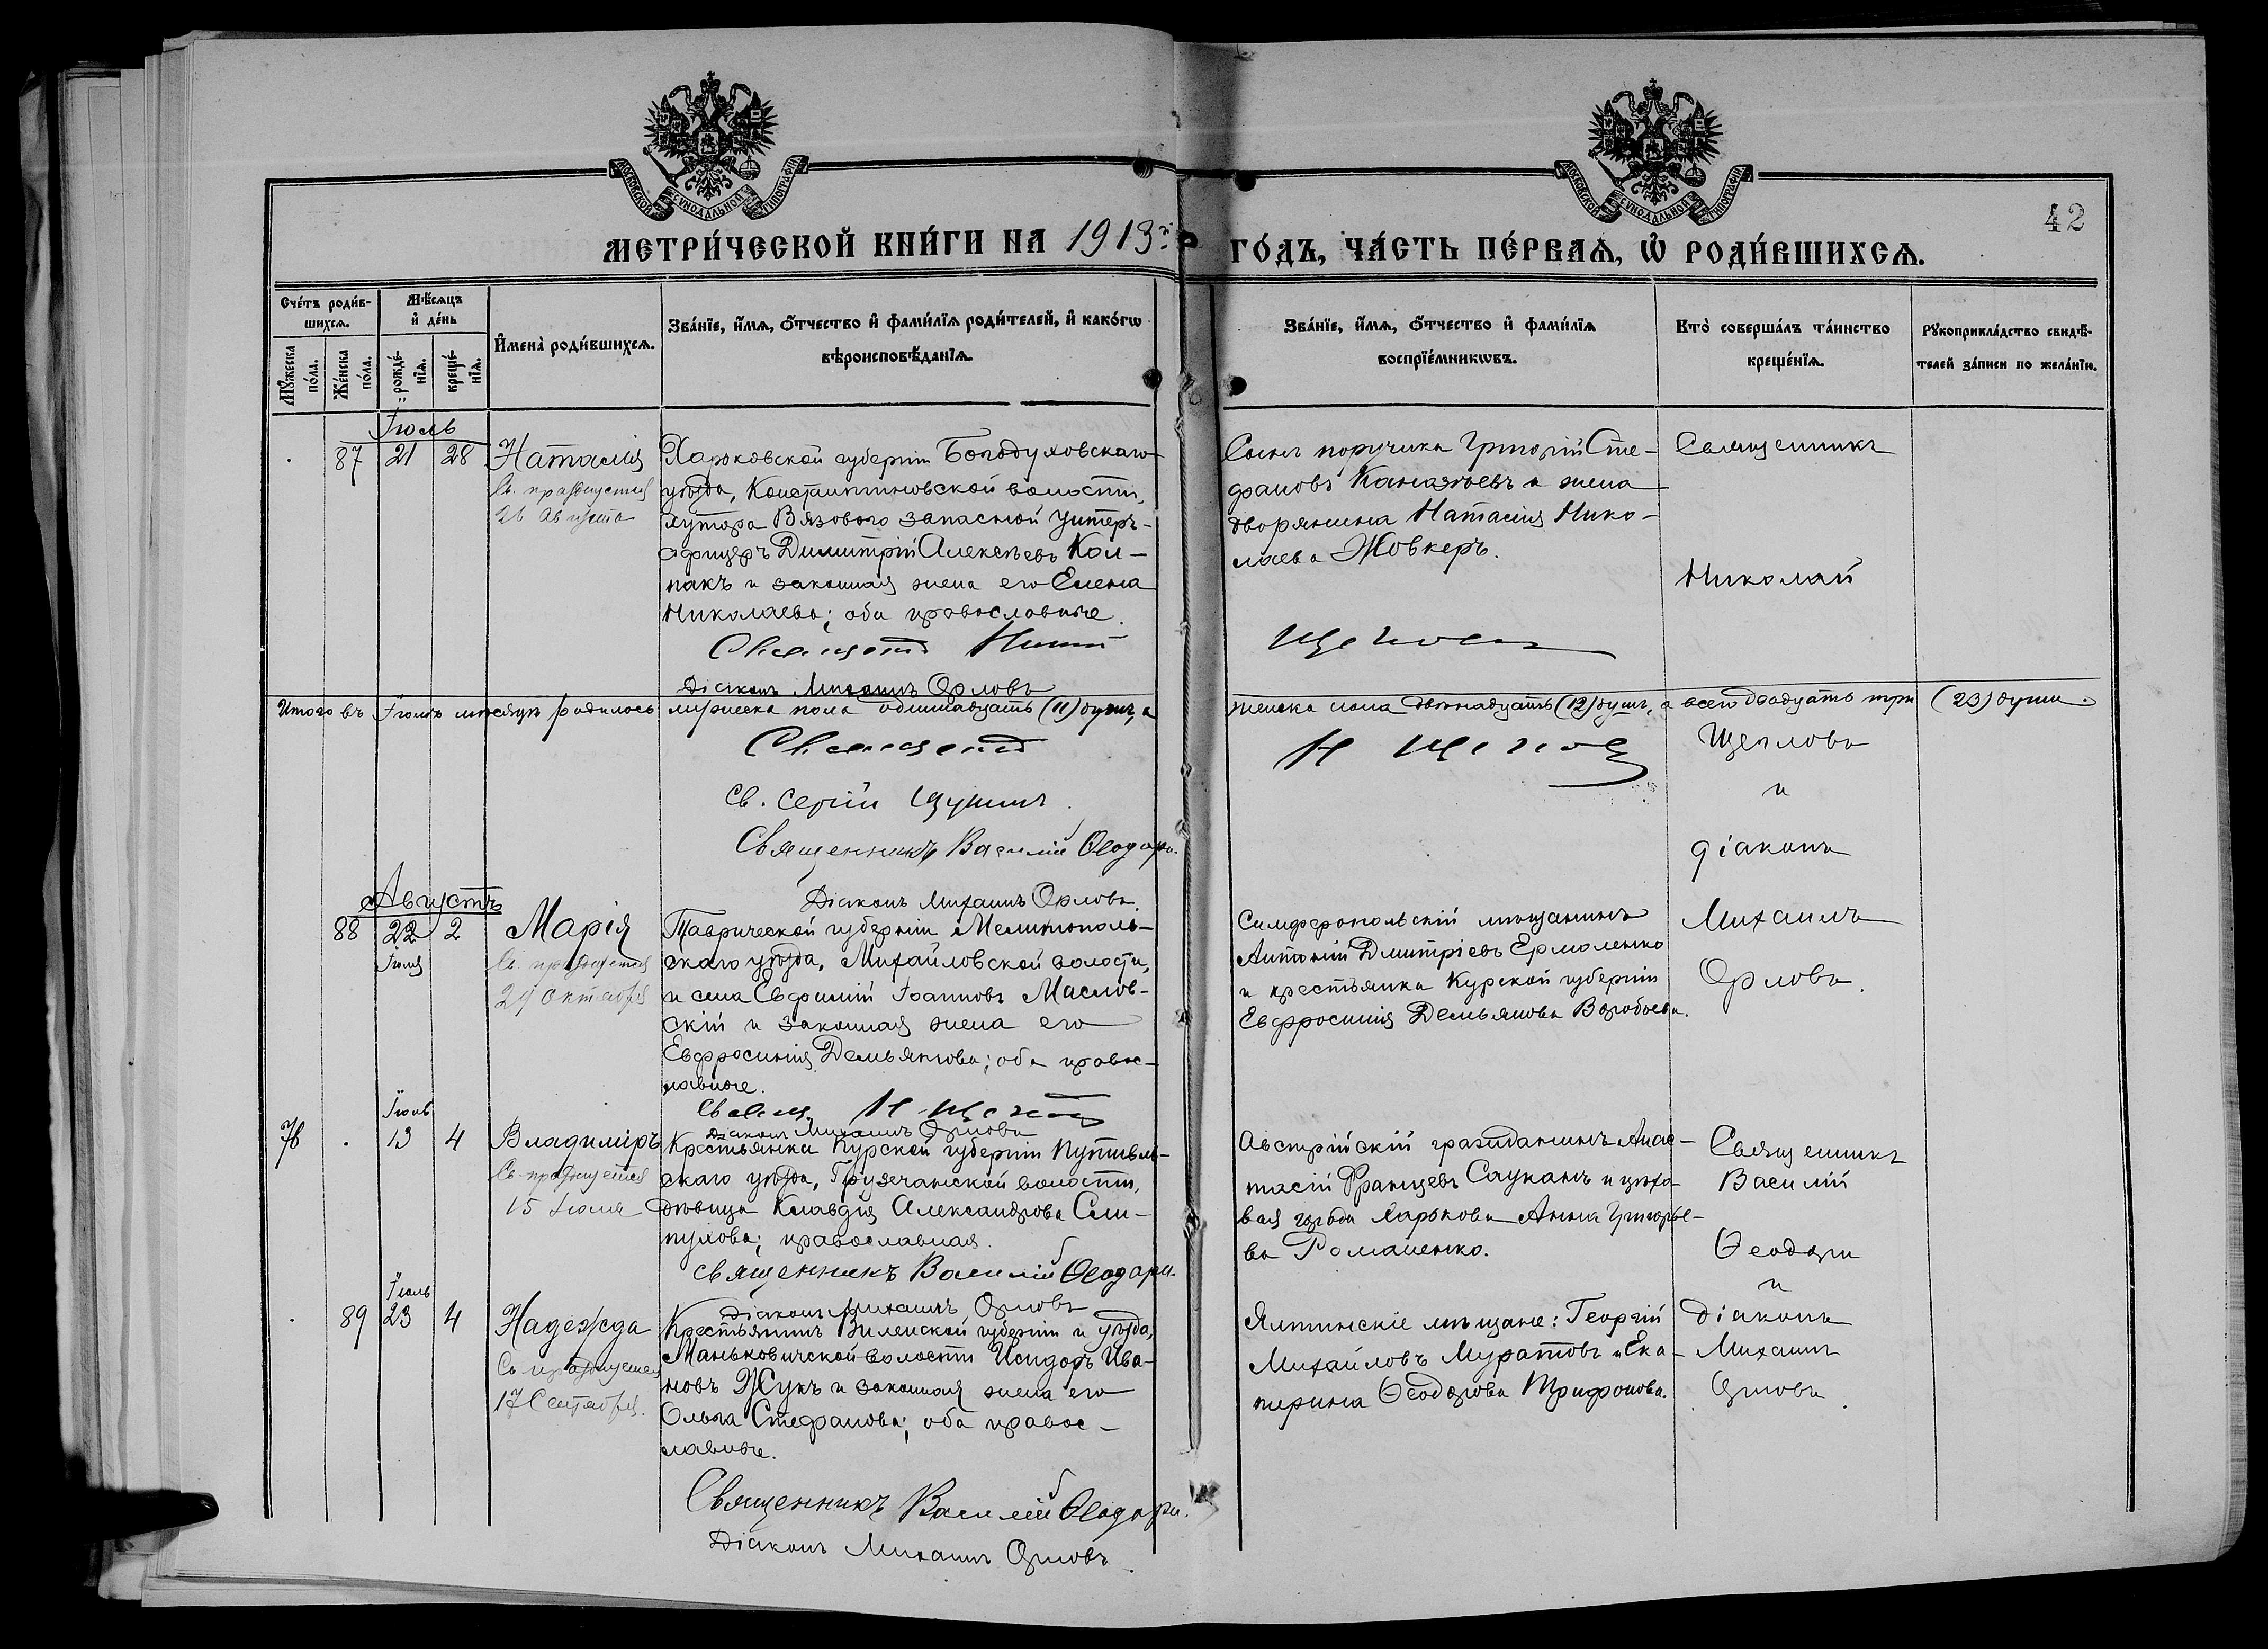 МОСКОВСКОЙ СѴНОДАЛЬНОЙ ТИПОГРАФИИ
МОСКОВСКОЙ СѴНОДАЛЬНОЙ ТИПОГРАФИИ
42
МЕТРИ́ЧЕСКОЙ КНИ́ГИ НА 1913й
ГО́ДЪ, ЧА́СТЬ ПЕ́РВАѦ, Ѡ РОДИ́ВШИХСѦ.
Сче́тъ роди́в-
шихсѧ.
Мѣ́сѧцъ
и҆ де́нь
Мꙋ́жеска
по́ла.
Же́нска
по́ла.
рожде́-
нїѧ.
креще́-
нїѧ.
И҆мена̀ роди́вшихсѧ.
Зва́нїе, и҆́мѧ, ѻ҆́тчество и҆ фами́лїѧ роди́телей, и҆ како́гѡ
вѣроисповѣ́данїѧ.
Зва́нїе, и҆́мѧ, ѻ҆́тчество и҆ фами́лїѧ
воспрїе́мникѡвъ.
Кто̀ соверша́лъ та́инство
креще́нїѧ.
Рꙋкоприкла́дство свидѣ́-
телей за́писи по жела́нїю.
Іюль
87 21 28 Наталія
Св. празднуется
26 Августа
Харьковской губерніи Богодуховскаго
уѣзда, Константиновской волости,
хутора Вязового запасной унтеръ-
офицеръ Димитрій Алексѣевъ Кол-
пакъ и законная жена его Елена
Николаева; оба православные.
Діаконъ Михаилъ Орловъ
Сынъ поручика Григорій Сте-
фановъ Канаѳьевъ и жена
дворянина Наталія Нико-
лаева Жовкеръ.
Священникъ
Николай
Итого въ Іюлѣ мѣсяцѣ родилось мужеска пола одиннадцать (11) душъ, а
женска пола двѣнадцать (12) душъ, а всего двадцать три (23) души.
Щегловъ
и
діаконъ
Михаилъ
Орловъ.
Св. Сергій Щукинъ.
Священникъ Василій Ѳеодори.
Діаконъ Михаилъ Орловъ.
Августъ
88 22 2 Марія
Іюля
Св. празднуется
29 октября
Таврической губерніи Мелитополь-
скаго уѣзда, Михайловской волости,
и села Евфимій Іоанновъ Маслов-
скій и законная жена его
Евфросинія Демьянова; оба правос-
лавные.
Свящ. Н. Щегловъ
Діаконъ Михаилъ Орловъ
Симферопольскій мѣщанинъ
Антоній Дмитріевъ Ермоленко
и крестьянка Курской губерніи
Евфросинія Демьянова Воробьева.
Іюль
76 . 13 4 Владиміръ
Св. празднуется
15 Іюля
Крестьянка Курской губерніи Путивль-
скаго уѣзда, Грузчанской волости,
дѣвица Клавдія Александрова
православная.
Священникъ Василій Ѳеодори.
Діаконъ Михаилъ Орловъ
Австрійскій гражданинъ Анас-
тасій Францевъ Сауканъ и цѣхо-
вая города Харькова Анна Григорье-
ва Романенко.
Священникъ
Василій
Ѳеодори
и
діаконъ
Михаилъ
Орловъ.
Іюль
. 89 23 4 Надежда
Св. празднуется
17 Сентября.
Крестьянинъ Виленской губерніи и уѣзда,
Маньковичской волости Исидоръ Ива-
новъ Жукъ и законная жена его
Ольга Стефанова; оба правос-
лавные.
Ялтинскіе мѣщане: Георгій
Михайловъ Муратовъ и Ека-
терина Ѳеодорова Трифонова.
Священникъ Василій Ѳеодори.
Діаконъ Михаилъ Орловъ.